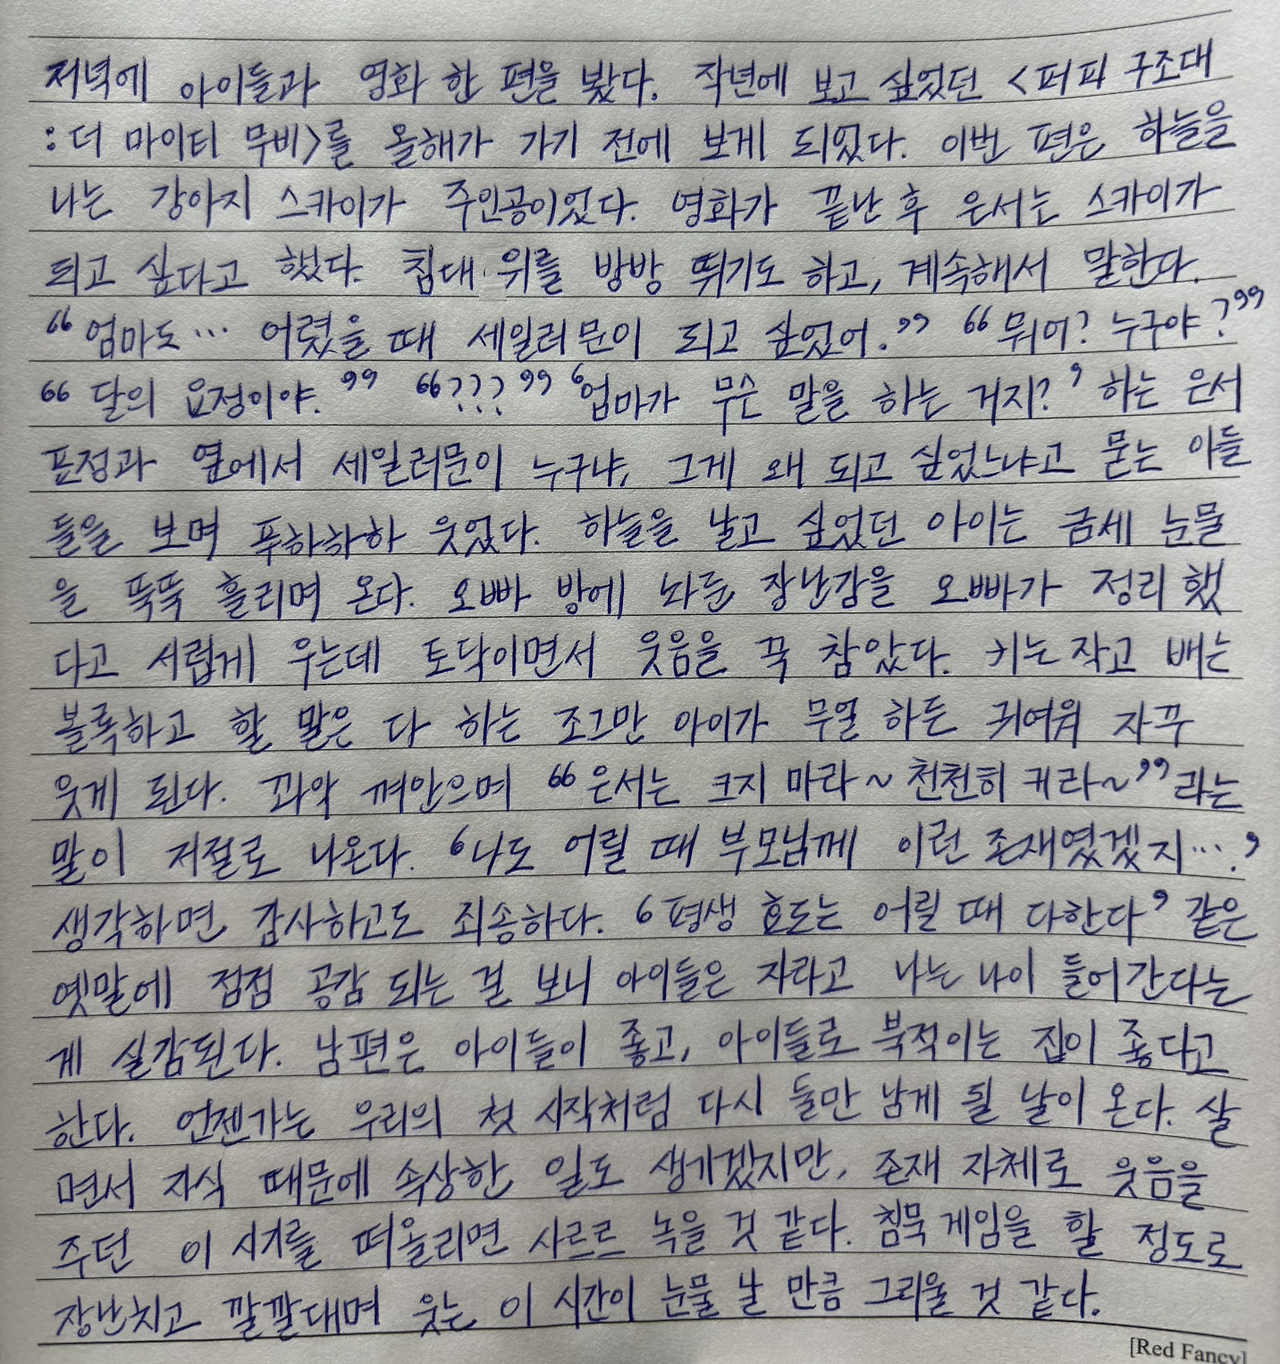 저녁에 아이들과 영화 한 편을 봤다. 작년에 보고 싶었던 <퍼피 구조대
: 더 마이티 무비>를 올해가 가기 전에 보게 되었다. 이번 편은 하늘을
나는 강아지 스카이가 주인공이었다. 영화가 끝난 후 은서는 스카이가
되고 싶다고 했다. 침대 위를 방방 뛰기도 하고, 계속해서 말한다.
“엄마도… 어렸을 때 세일러문이 되고 싶었어.” “뭐어? 누구야?”
“달의 요정이야.” “???” ‘엄마가 무슨 말을 하는 거지?’ 하는 은서
표정과 옆에서 세일러문이 누구냐, 그게 왜 되고 싶었느냐고 묻는 아들
들을 보며 푸하하하 웃었다. 하늘을 날고 싶었던 아이는 금세 눈물
을 뚝뚝 흘리며 온다. 오빠 방에 놔둔 장난감을 오빠가 정리했
다고 서럽게 우는데 토닥이면서 웃음을 꾹 참았다. 키는 작고 배는
볼록하고 할 말은 다 하는 조그만 아이가 무얼 하든 귀여워 자꾸
웃게 된다. 꽈악 껴안으며 “은서는 크지 마라~ 천천히 커라~”라는
말이 저절로 나온다. ‘나도 어릴 때 부모님께 이런 존재였겠지….’
생각하면 감사하고도 죄송하다. ‘평생 효도는 어릴 때 다한다’ 같은
옛말에 점점 공감 되는 걸 보니 아이들은 자라고 나는 나이 들어간다는
게 실감된다. 남편은 아이들이 좋고, 아이들로 북적이는 집이 좋다고
한다. 언젠가는 우리의 첫 시작처럼 다시 둘만 남게 될 날이 온다. 살
면서 자식 때문에 속상한 일도 생기겠지만, 존재 자체로 웃음을
주던 이 시기를 떠올리면 사르르 녹을 것 같다. 침묵 게임을 할 정도로
장난치고 깔깔대며 웃는 이 시간이 눈물 날 만큼 그리울 것 같다.
[Red Fancy]